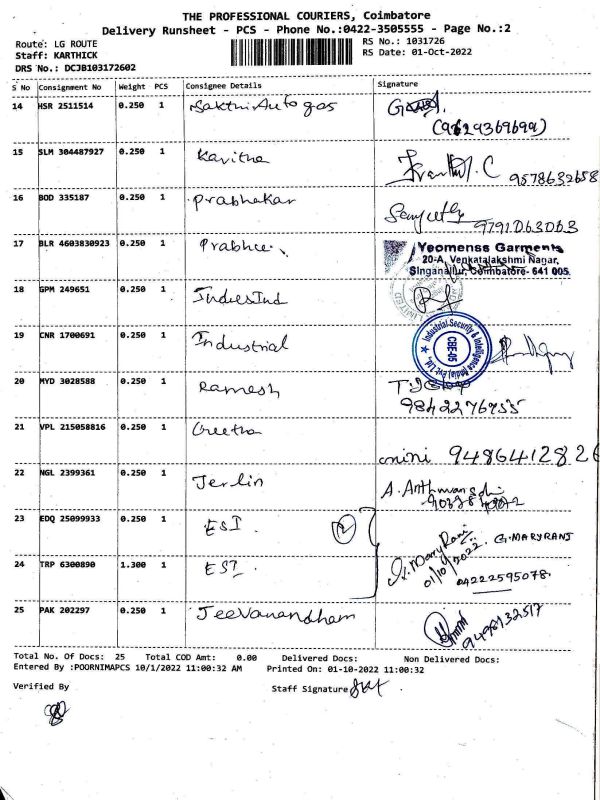 THE PROFESSIONAL COURIERS, Coimbatore
Delivery Runsheet - PCS - Phone No.:0422-3505555 - Page No.:2
Route: LG ROUTE
Staff: KARTHICK
DRS No.: DCJB103172602
RS No.: 1031726
RS Date: 01-Oct-2022
S No Consignment No Weight PCS Consignee Details Signature
14 HSR 2511514 0.250 1 Sakthi Auto gas
(9629369699)
15 SLM 304487927 0.250 1 Kavitha
9578632658
16 BOD 335187 0.250 1 Prabhakar
9791063063
17 BLR 4603830923 0.250 1 Prabhu
Yeomenss Garments
20-A, Venkatalakshmi Nagar,
Singanallur, Coimbatore- 641 005
18 GPM 249651 0.250 1 IndusInd
19 CNR 1700691 0.250 1 Industrial
Industrial Security & Intelligence India Pvt. Ltd.,
CBE-05
20 MYD 3028588 0.250 1 Ramesh
21 VPL 215058816 0.250 1 Geetha
9486412826
22 NGL 2399361 0.250 1 Jerlin
23 EDQ 25099933 0.250 1 ESI. 2
G.MARYRANJ
01/10/2022
24 TRP 6300890 1.300 1 ESI.
04222595078.
25 PAK 202297 0.250 1 Jeevanandham
9498132517
Total No. Of Docs: 25 Total COD Amt: 0.00 Delivered Docs: Non Delivered Docs:
Entered By :POORNIMAPCS 10/1/2022 11:00:32 AM Printed On: 01-10-2022 11:00:32
Verified By Staff Signature